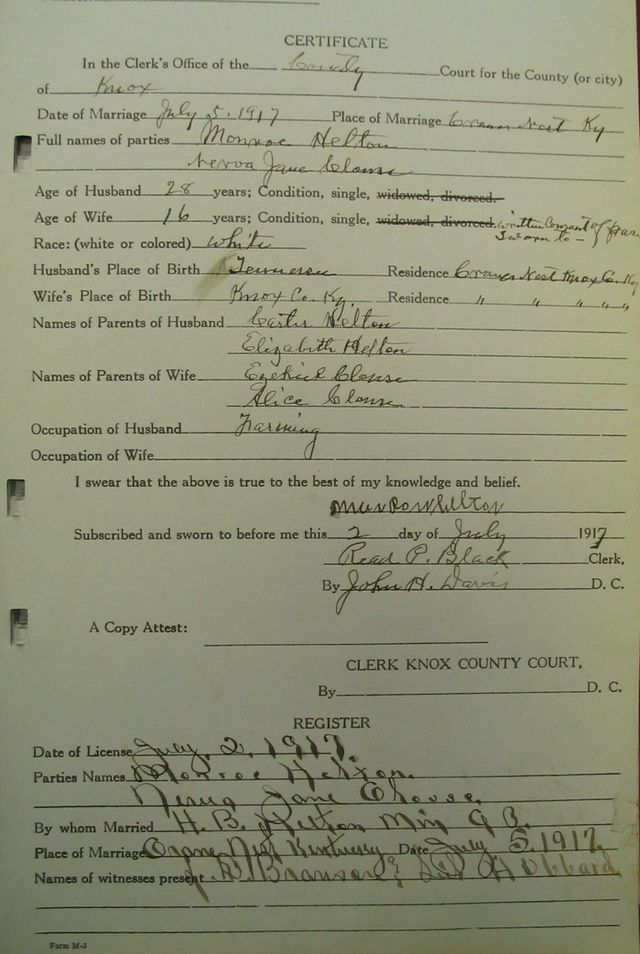 CERTIFICATE
In the Clerk's Office of the County Court for the County (or city)
of Knox
Date of Marriage July 5. 1917 Place of Marriage Cranes Nest Ky
Full names of parties Monroe Helton
Nerva Jane Clouse
Age of Husband 28 years; Condition, single, widowed, divorced.
Age of Wife 16 years; Condition, single, widowed, divorced. written consent of
Sworn to -
Race: (white or colored) White
Husband's Place of Birth Tennessee Residence Cranes Nest Knox Co. Ky
Wife's Place of Birth Knox Co. Ky. Residence " " " " "
Names of Parents of Husband Carter Helton
Elizabeth Helton
Names of Parents of Wife Ezekiel Clouse
Alice Clouse
Occupation of Husband Farming
Occupation of Wife
I swear that the above is true to the best of my knowledge and belief.
Helton
Subscribed and sworn to before me this 2 day of July 1917
Read P. Black Clerk,
By John H. Davis D. C.
A Copy Attest:
CLERK KNOX COUNTY COURT,
By D. C.
REGISTER
Date of License July, 2, 1917.
Parties Names Monroe Helton.
Jane Clouse.
By whom Married H. B. Helton Min
Place of Marriage Crane Nest Kentucky Date July 5, 1917.
Names of witnesses present Branson & Hubbard
Form M-3